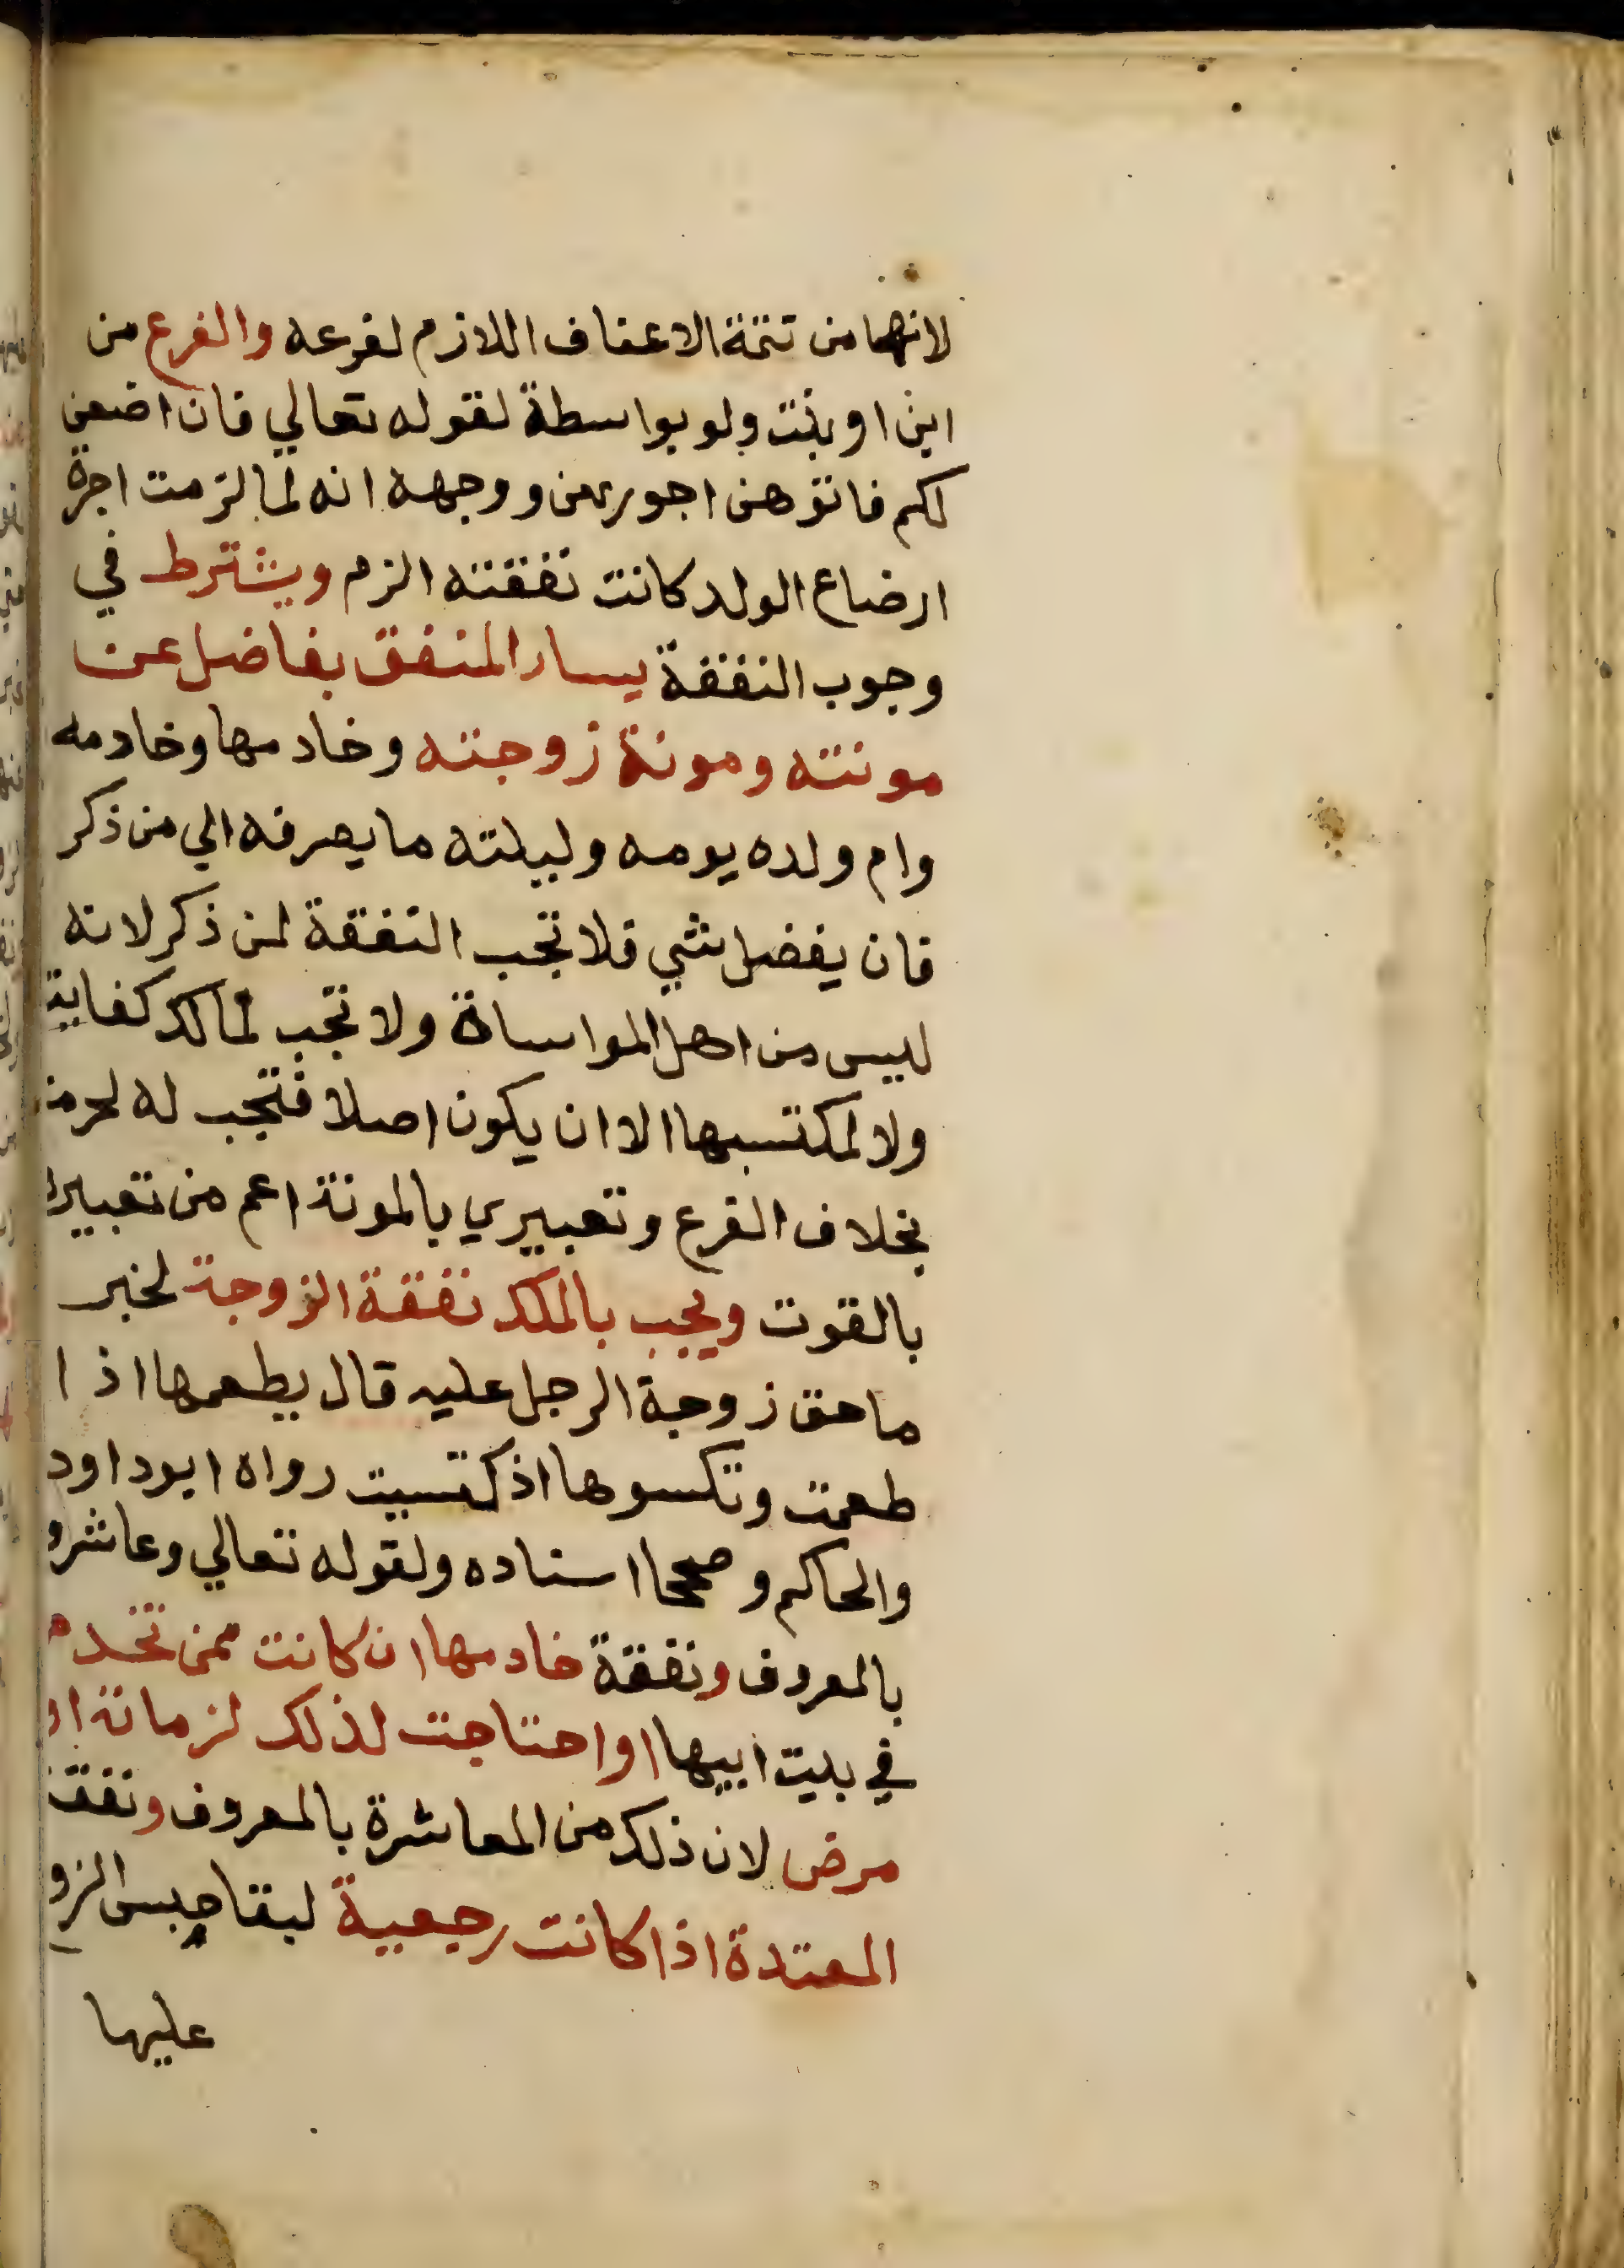 لانهما من تتمة الاعفاف اللازم لفرعه والفرع من
ابن او بنت ولو بواسطة لقوله تعالي فان ارضعن
لكم فاتوهن اجورهن ووجهه انه لما لزمت اجرة
ارضاع الولد كانت نفقته الزم ويشترط في
وجوب النفقة يسار المنفق بفاضل عن
مونته ومونة زوجته وخادمها وخادمه
وام ولده يومه وليلته ما يصرفه الي من ذكر
فان يفضل شي فلا تجب النفقة لمن ذكر لانه
ليس من اهل المواساة ولا تجب لمالك كفاية
ولا لمكتسبها الا ان يكون اصلا فتجب له لحرمة
بخلاف الفرع وتعبيري بالمونة اعم من تعبيره
بالقوت ويجب بالملك نفقة الزوجة لخبر
ما حق زوجة الرجل عليه قال يطعمها اذا
طعمت وتكسوها اذ كتسيت رواه ابو داود
والحاكم وصححا اسناده ولقوله تعالي وعاشرو
بالمعروف ونفقة خادمها ان كانت ممن تخدم
في بيت ابيها او احتاجت لذلك لزمانة او
مرض لان ذلك من المعاشرة بالمعروف ونفقة
المعتدة اذا كانت رجعية لبقا حبس الزو
عليها